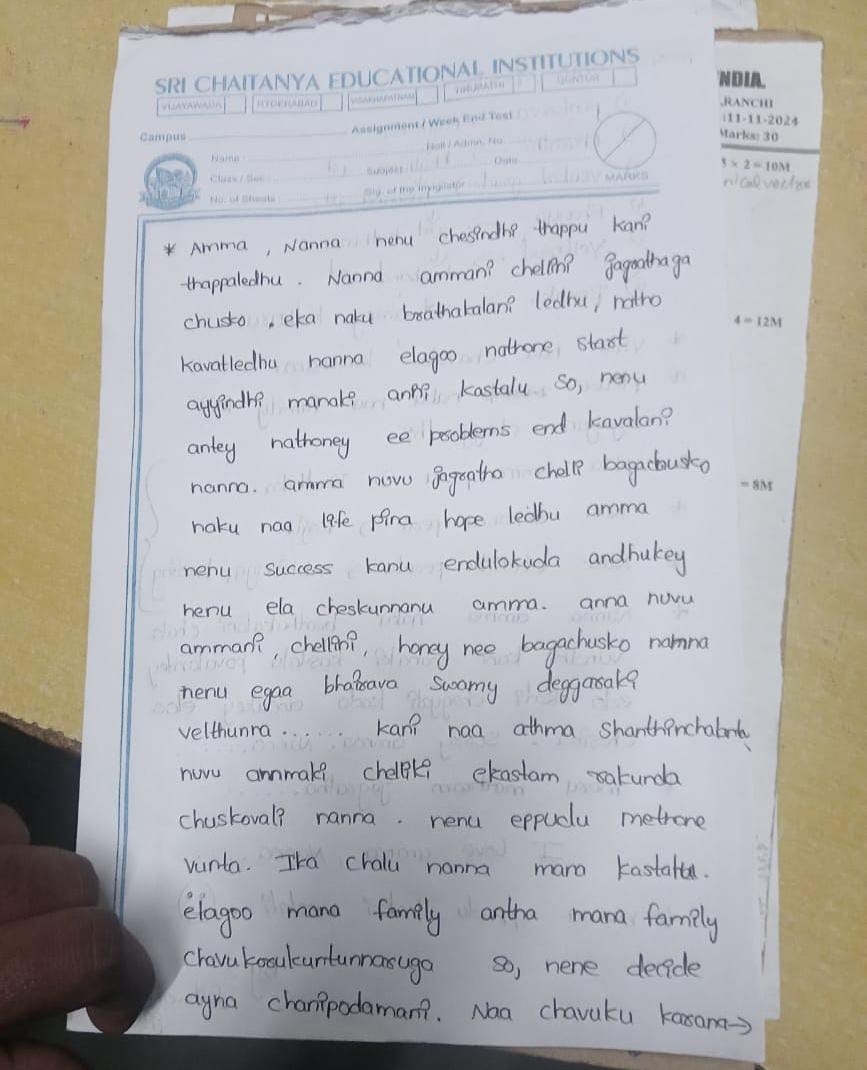 SRI CHAITANYA EDUCATIONAL INSTITUTIONS
VIJAYAWADA HYDERABAD VISAKHAPATNAM TIRUPATHI GUNTUR
Assignment / Week End Test
Campus
Roll / Admn. No.
Name
Class / Sec Subject Date
No. of Sheets Sig. of the Invigilator
MARKS
* Amma , Nanna nenu chesindhi thappu kani
thappaledhu . Nanna ammani chellini jagrathaga
chusko , eka naku brathakalani ledhu, natho
kavatledhu nanna elagoo nathone start
ayyindhi manaki anni kastalu so, nenu
antey nathoney ee problems end kavalani
nanna. amma nuvu jagratha chelli bagachusko
naku naa life pina hope ledhu amma
nenu success kanu endulokuda andhukey
nenu ela cheskunnanu amma. anna nuvu
ammani , chellini, honey nee bagachusko nanna
nenu egaa bhairava swamy deggaraki
velthunna ...... kani naa athma
nuvu ammaki chelliki ekastam rakunda
chuskovali nanna . nenu eppudu metrone
vunta. Ika chalu nanna mana
elagoo mana family antha mana family
so, nene decide
ayna chanipodamani. Naa chavuku karana→
NDIA.
RANCHI
:11-11-2024
Marks: 30
5 × 2 = 10M
4 = 12M
= 8M